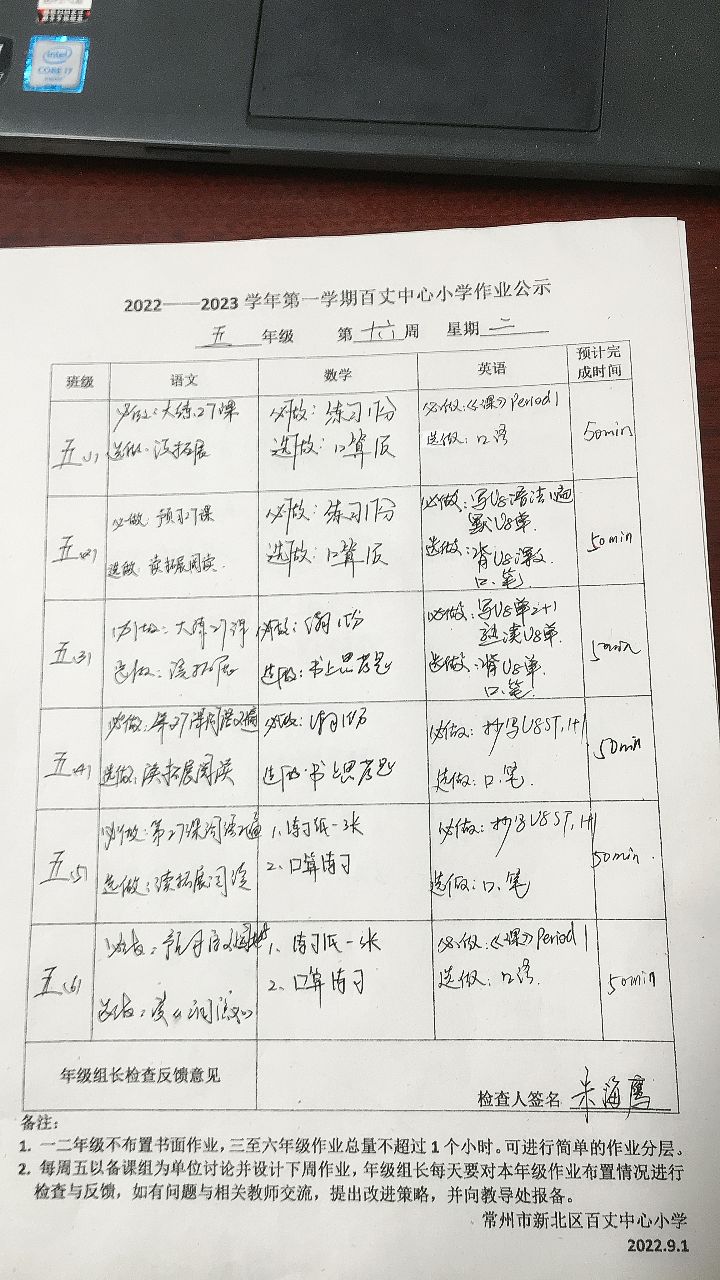 intel
CORE i7
2022——2023 学年第一学期百丈中心小学作业公示
五 年级 第 十六 周 星期 二
班级 语文 数学 英语 预计完成时间
五(1)
必做:大练27课
选做:读拓展
必做:练习1份
选做:口算1页
必做:《课》Period 1
选做:口语
50min
五(2)
必做:预习27课
选做:读拓展阅读
必做:练习1份
选做:口算1页
必做:写U8语法1遍
默U8单.
选做:背U8课文
口.笔
50min
五(3)
必做:大练27课
选做:读拓展
必做:练习1份
选做:书上思考题
必做:写U8单2+1
熟读U8单.
选做:背U8单.
口.笔
50min
五(4)
必做:第27课词语2遍
选做:读拓展阅读
必做:练习1份
选做:书上思考题
必做:抄写U8ST,1+1
选做:口.笔
50min
五(5)
必做:第27课词语2遍
选做:读拓展阅读
1.练习纸一张
2.口算练习
必做:抄写U8ST,1+1
选做:口.笔
50min.
五(6)
必做:
选做:读
1.练习纸一张
2.口算练习
必做:《课》Period 1
选做:口语
50min
年级组长检查反馈意见
检查人签名 朱海鹰
备注:
1. 一二年级不布置书面作业,三至六年级作业总量不超过1个小时。可进行简单的作业分层。
2. 每周五以备课组为单位讨论并设计下周作业,年级组长每天要对本年级作业布置情况进行
检查与反馈,如有问题与相关教师交流,提出改进策略,并向教导处报备。
常州市新北区百丈中心小学
2022.9.1